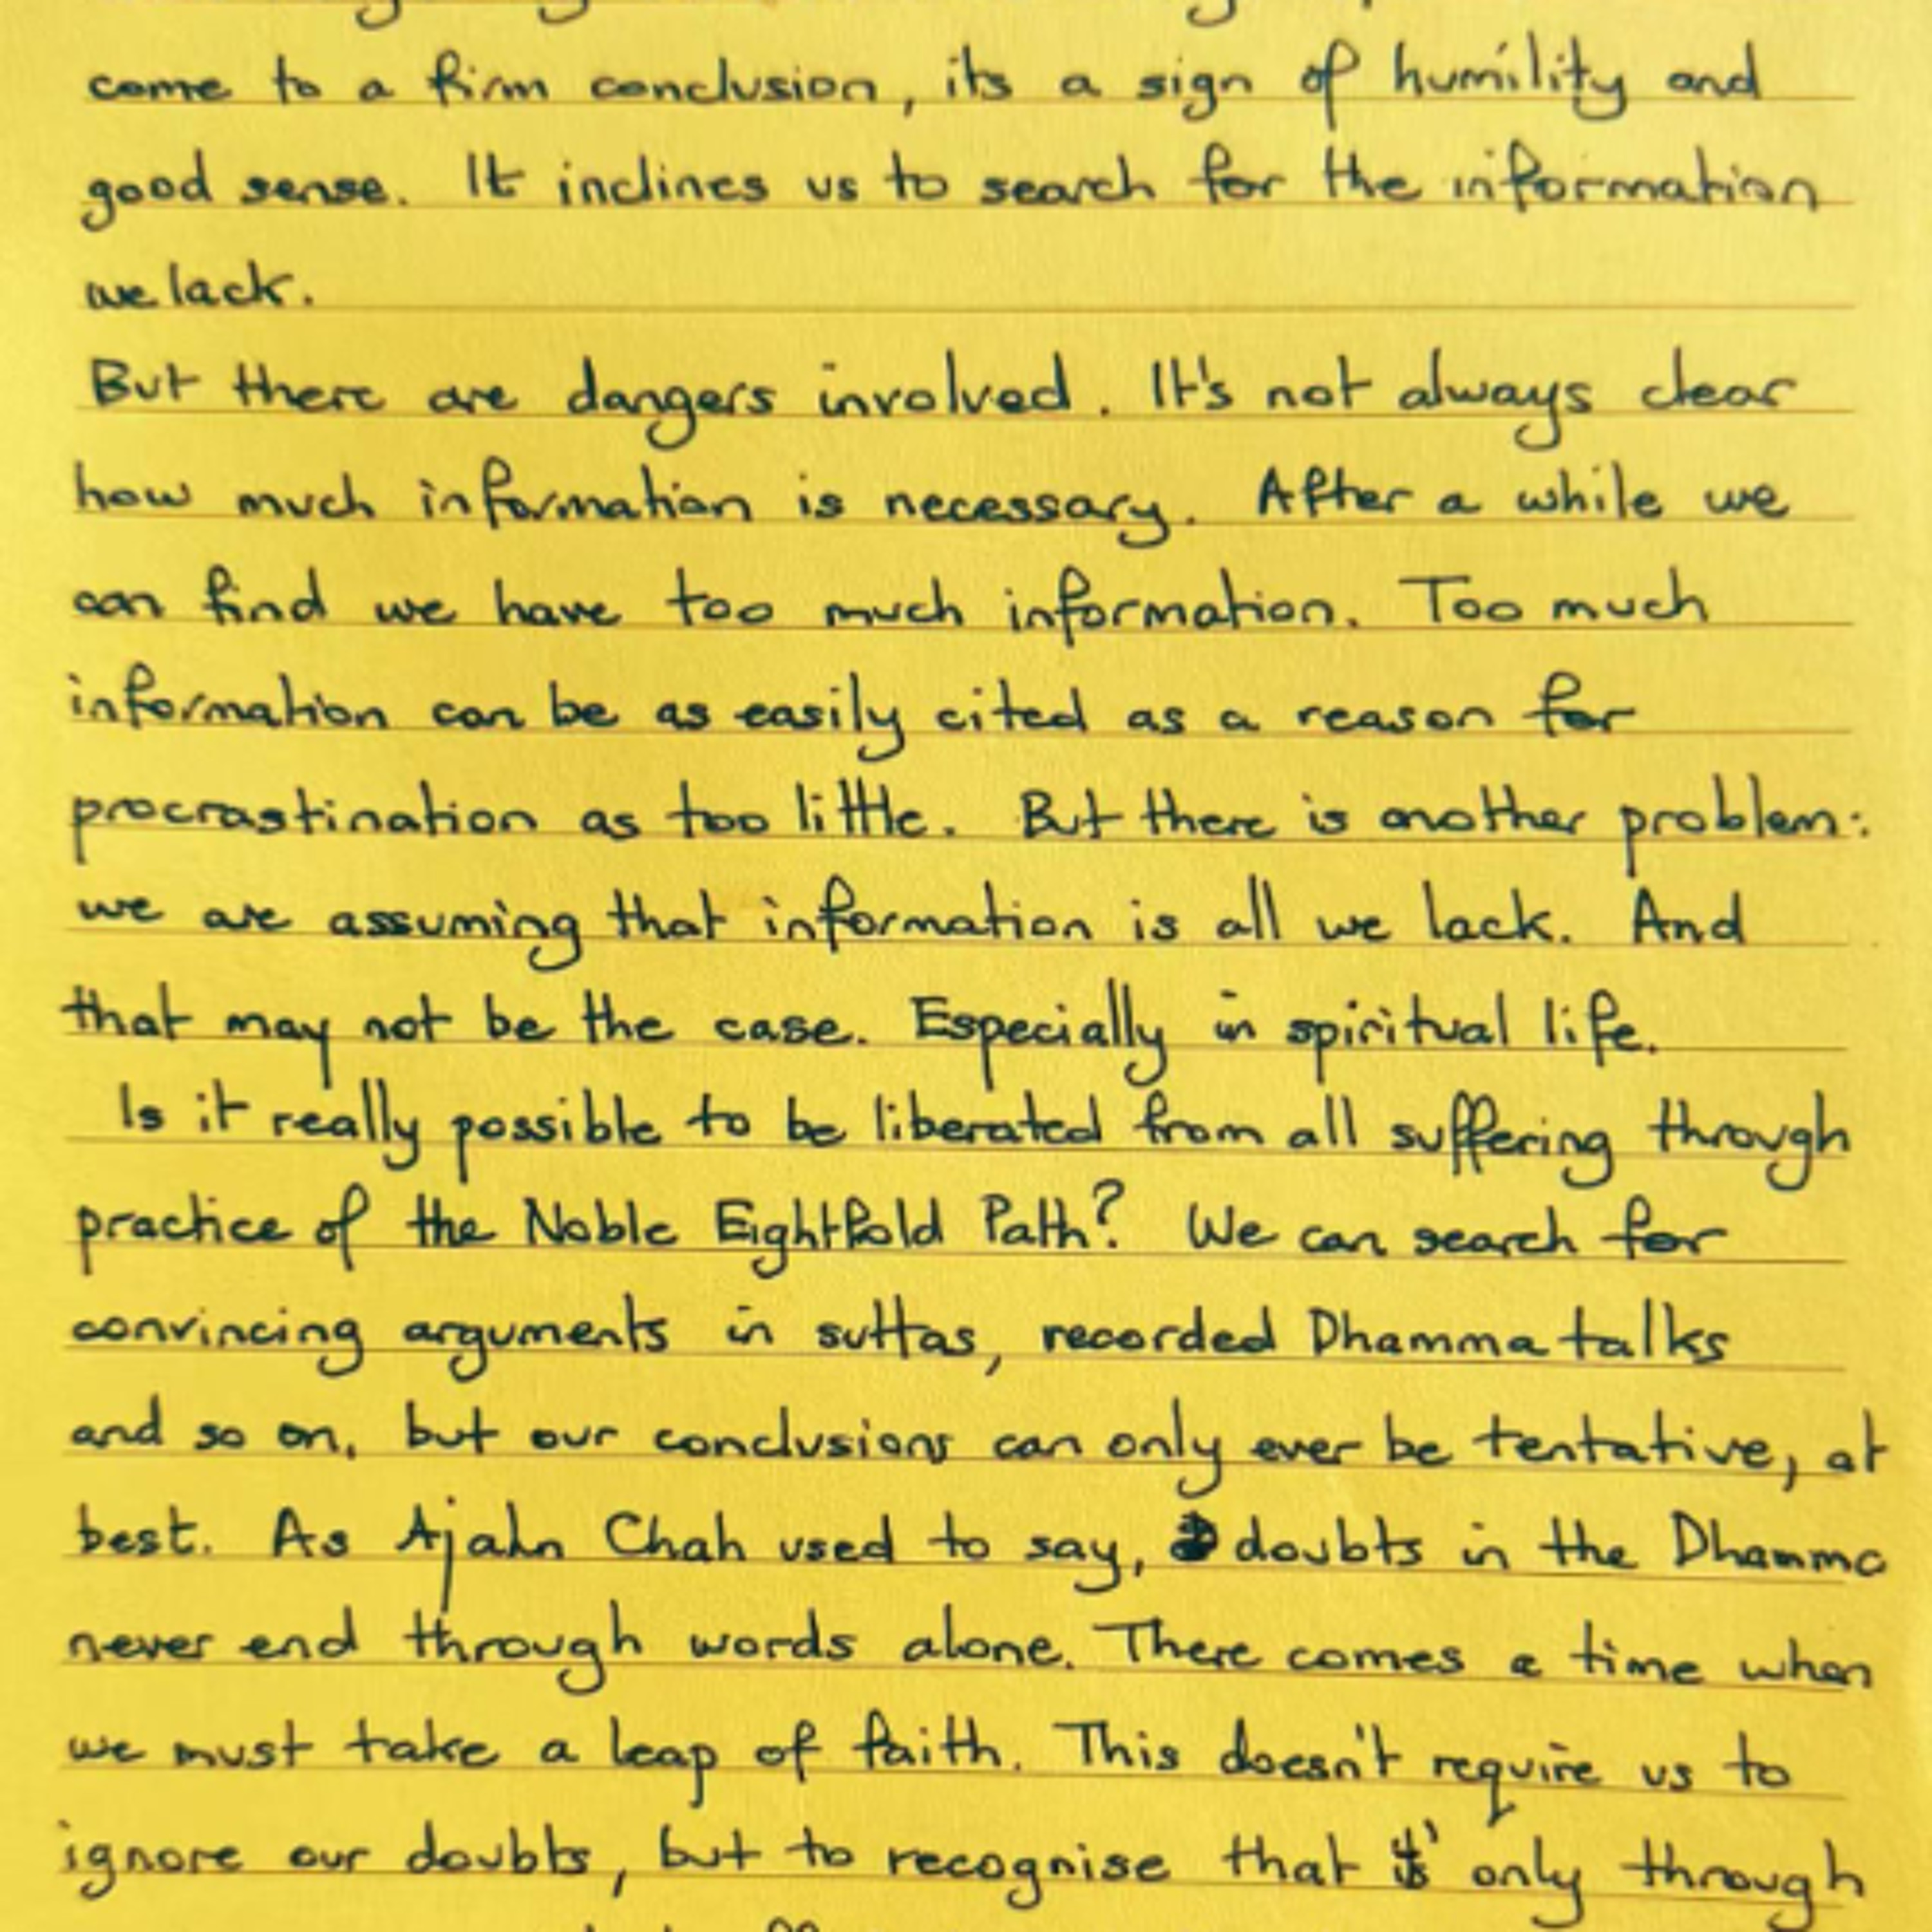 come to a firm conclusion, its a sign of humility and
good sense. It inclines us to search for the information
we lack.
But there are dangers involved. It's not always clear
how much information is necessary. After a while we
can find we have too much information. Too much
information can be as easily cited as a reason for
procrastination as too little. But there is another problem:
we are assuming that information is all we lack. And
that may not be the case. Especially in spiritual life.
Is it really possible to be liberated from all suffering through
practice of the Noble Eightfold Path? We can search for
convincing arguments in suttas, recorded Dhamma talks
and so on, but our conclusions can only ever be tentative, at
best. As Ajahn Chah used to say, doubts in the Dhamma
never end through words alone. There comes a time when
we must take a leap of faith. This doesn't require us to
ignore our doubts, but to recognise that it's only through